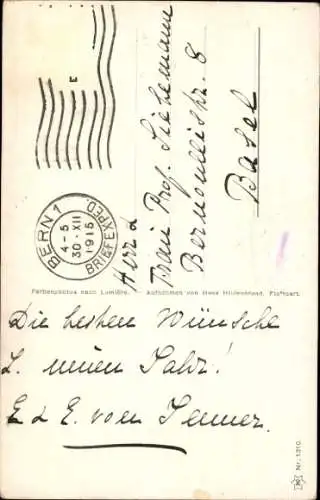 E
BERN 1
4-5
30.XII
1915
BRIEFEXPED.
Herr &
Frau Prof. Siebenmann
Bernoullistr. 8
Basel
Farbenphotos nach Lumière.
Aufnahmen von Hans Hildenbrand, Stuttgart.
Die besten Wünsche
z. neuen Jahr!
E & E. von Jenner.
Nr. 1310